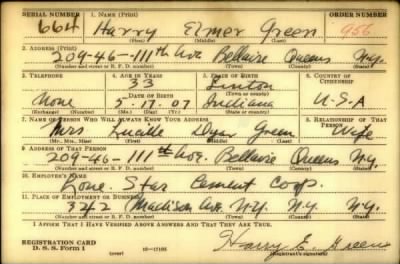 SERIAL NUMBER 1. NAME (Print) ORDER NUMBER
664 Harry Elmer Green 956
(First) (Middle) (Last)
2. ADDRESS (Print)
209-46-111th Ave. Bellaire Queens N.Y.
(Number and street or R. F. D. number) (Town) (County) (State)
3. TELEPHONE 4. AGE IN YEARS 5. PLACE OF BIRTH 6. COUNTRY OF CITIZENSHIP
33 Linton
DATE OF BIRTH (Town or county)
None 5-17-07 Indiana U-S-A
(Exchange) (Number) (Mo.) (Day) (Yr.) (State or country)
7. NAME OF PERSON WHO WILL ALWAYS KNOW YOUR ADDRESS 8. RELATIONSHIP OF THAT PERSON
Mrs Lucille Green Wife
(Mr., Mrs., Miss) (First) (Middle) (Last)
9. ADDRESS OF THAT PERSON
209-46-111th Ave. Bellaire Queens N.Y.
(Number and street or R. F. D. number) (Town) (County) (State)
10. EMPLOYER'S NAME
Lone Star Cement Corp.
11. PLACE OF EMPLOYMENT OR BUSINESS
342 Madison Ave. N.Y. N.Y. N.Y.
(Number and street or R. F. D. number) (Town) (County) (State)
I AFFIRM THAT I HAVE VERIFIED ABOVE ANSWERS AND THAT THEY ARE TRUE.
REGISTRATION CARD
D. S. S. Form 1 (over) 16-17105 Harry E. Green
(Registrant's signature)